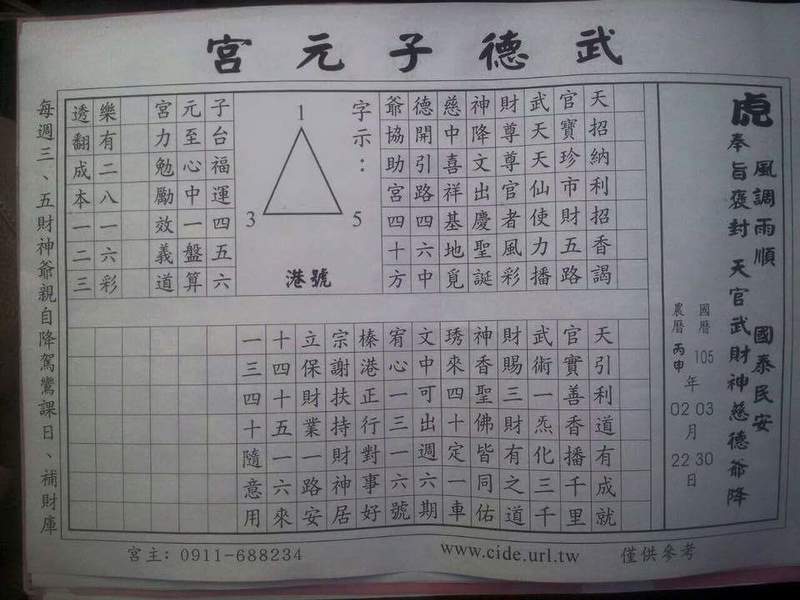 武德子元宮
虎 風調雨順 國泰民安
奉旨褒封 天官武財神慈德爺降
國曆 105年 03月 30日
農曆 丙申 02 22
天招納利招香謁
官寶珍市財五路
武天天仙使力播
財尊尊官者風彩
神降文出慶聖誕
慈中喜祥基地覓
德開引路四六中
爺協助宮四十方
字示：
1
3
5
港號
子台福運四五六
元至心中一盤算
宮力勉勵效義道
樂有二八一六彩
透翻成本一二三
天引利道有成就
官實善香播千里
武術一炁化三千
財賜三財有之道
神香聖佛皆同佑
琇來四十定一車
文中可出週六期
宥心一三一六號
榛港正行對事好
宗謝扶持財神居
立保財業一路安
十四十五一六來
一三四十隨意用
每週三、五財神爺親自降駕鸞課日、補財庫
宮主：0911-688234
www.cide.url.tw
僅供參考